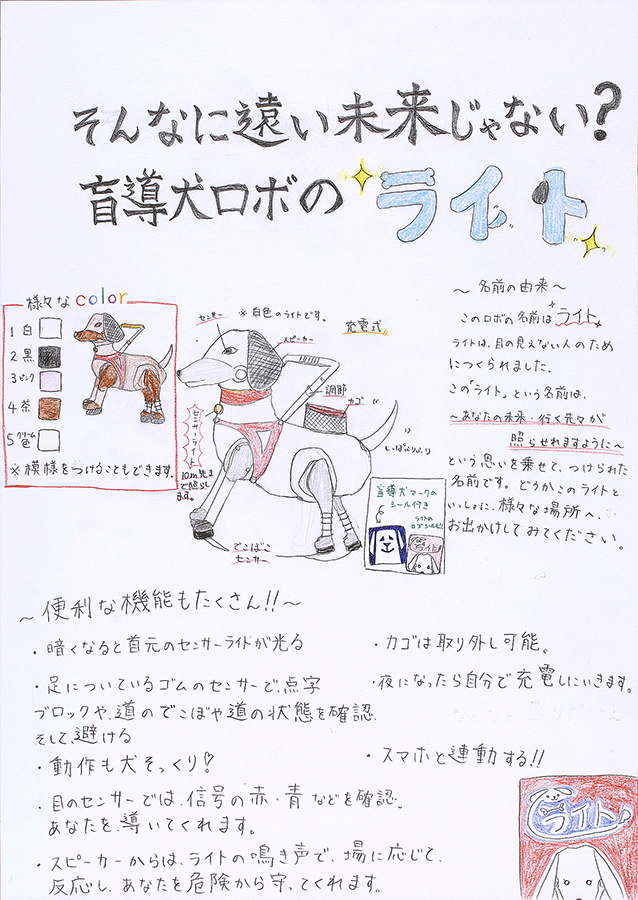 そんなに遠い未来じゃない?
盲導犬ロボのライト
様々なcolor
1 白
2 黒
3 ピンク
4 茶
5 クリーム色
※模様をつけることもできます。
センサー
※白色のライトです。
スピーカー
充電式
調節
カゴ
センサーライト
10m先まで照らします。
しっぽふりふり
でこぼこ
センサー
盲導犬マークの
シール付き
ライトの
ロゴシールも!!
ライト
〜名前の由来〜
このロボの名前はライト
ライトは、目の見えない人のため
につくられました。
この「ライト」という名前は、
〜あなたの未来・行く先々が
照らせれますように〜
という思いを乗せて、つけられた
名前です。どうかこのライトと
いっしょに、様々な場所へ、
お出かけしてみてください。
〜便利な機能もたくさん!!〜
・暗くなると首元のセンサーライトが光る
・足についているゴムのセンサーで、点字
ブロックや、道のでこぼや道の状態を確認。
そして、避ける
・動作も犬そっくり♡
・目のセンサーでは、信号の赤・青などを確認。
あなたを、導いてくれます。
・スピーカーからは、ライトの鳴き声で、場に応じて、
反応し、あなたを危険から守ってくれます。
・カゴは取り外し可能。
・夜になったら自分で充電しにいきます。
・スマホと連動する!!
ライト